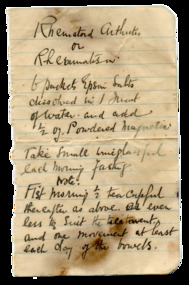 Rheumatoid Arthritis
or
Rheumatism
6 packets Epsom Salts
dissolved in 1 Pint
of Water and add
½ oz. Powdered Magnesia
Take Small wineglassful
each morning fasting
Note!
First morning ½ teacupful
thereafter as above. or even
less to suit the
and one movement at least
each day of the bowels.